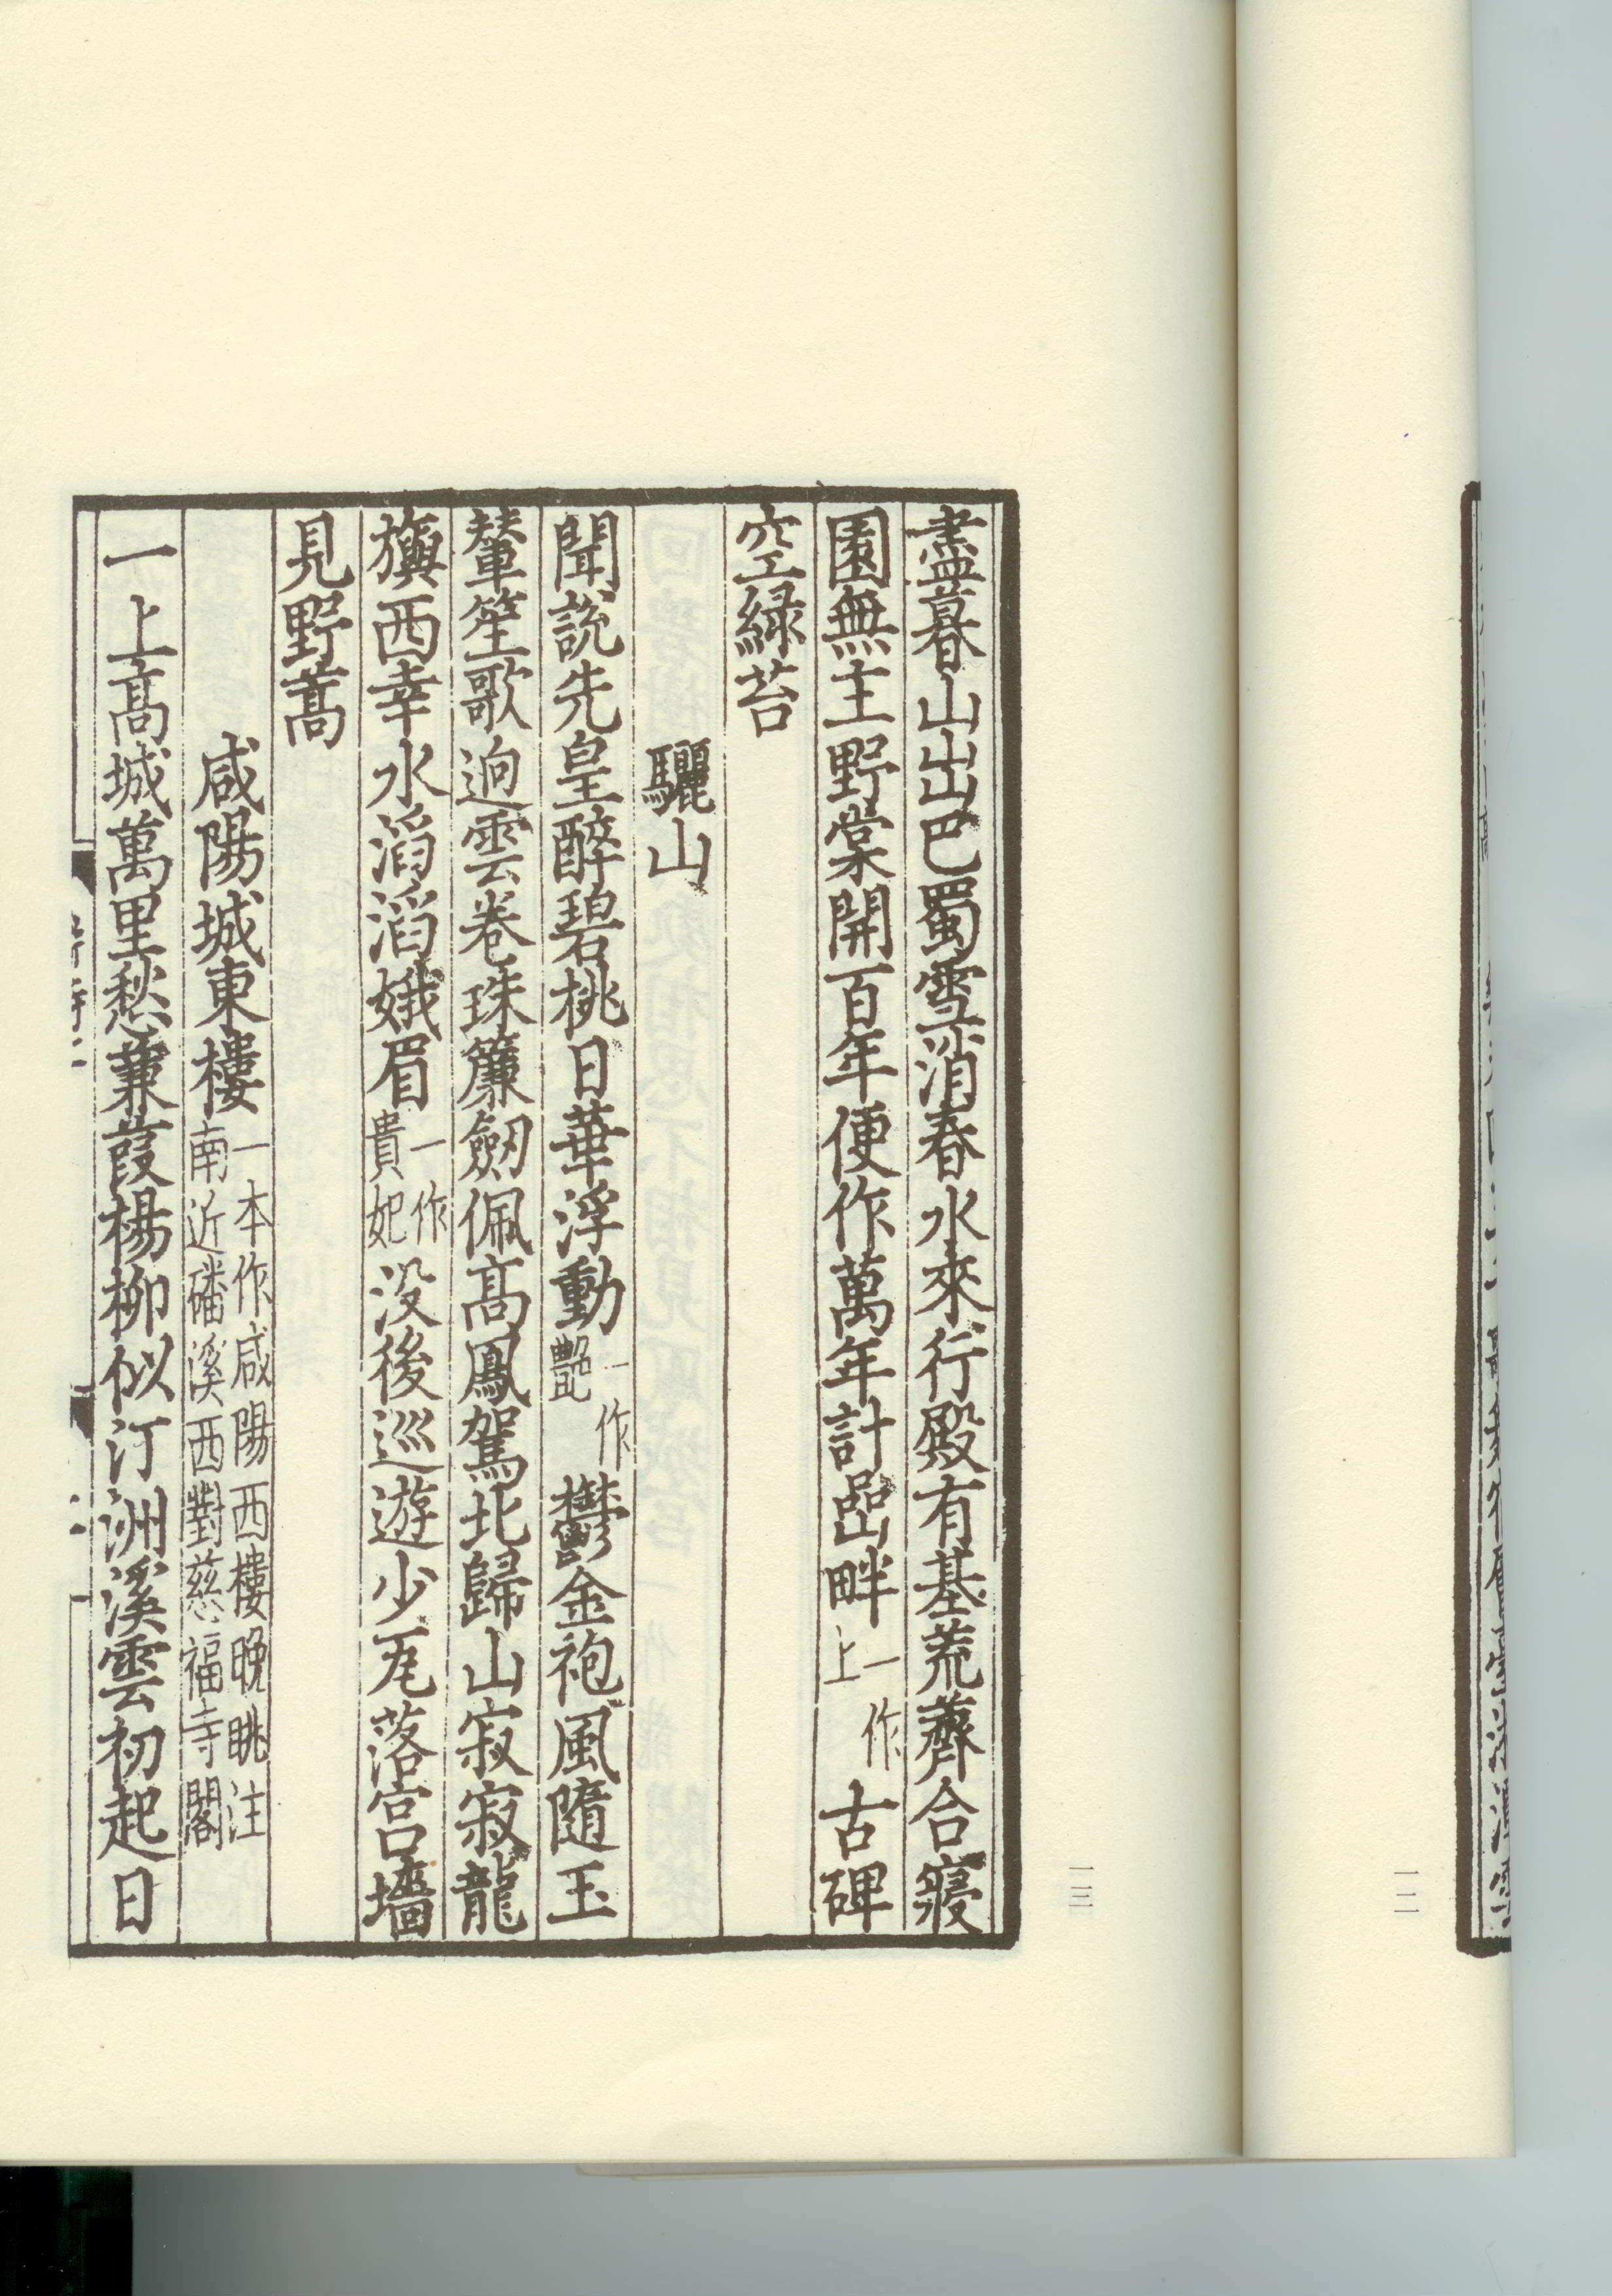 盡暮山出巴蜀雪消春水來行殿有基荒薺合寢
園無主野棠開百年便作萬年計嵒畔一作上古碑
空綠苔
驪山
聞說先皇醉碧桃日華浮動一作艷鬱金袍風隨玉
輦笙歌迥雲卷珠簾劒佩高鳳駕北歸山寂寂龍
旟西幸水滔滔娥眉一作貴妃没後巡遊少瓦落宮墻
見野蒿
咸陽城東樓一本作咸陽西樓晚眺注南近磻溪西對慈福寺閣
一上高城萬里愁蒹葭楊柳似汀洲溪雲初起日
一三
一二